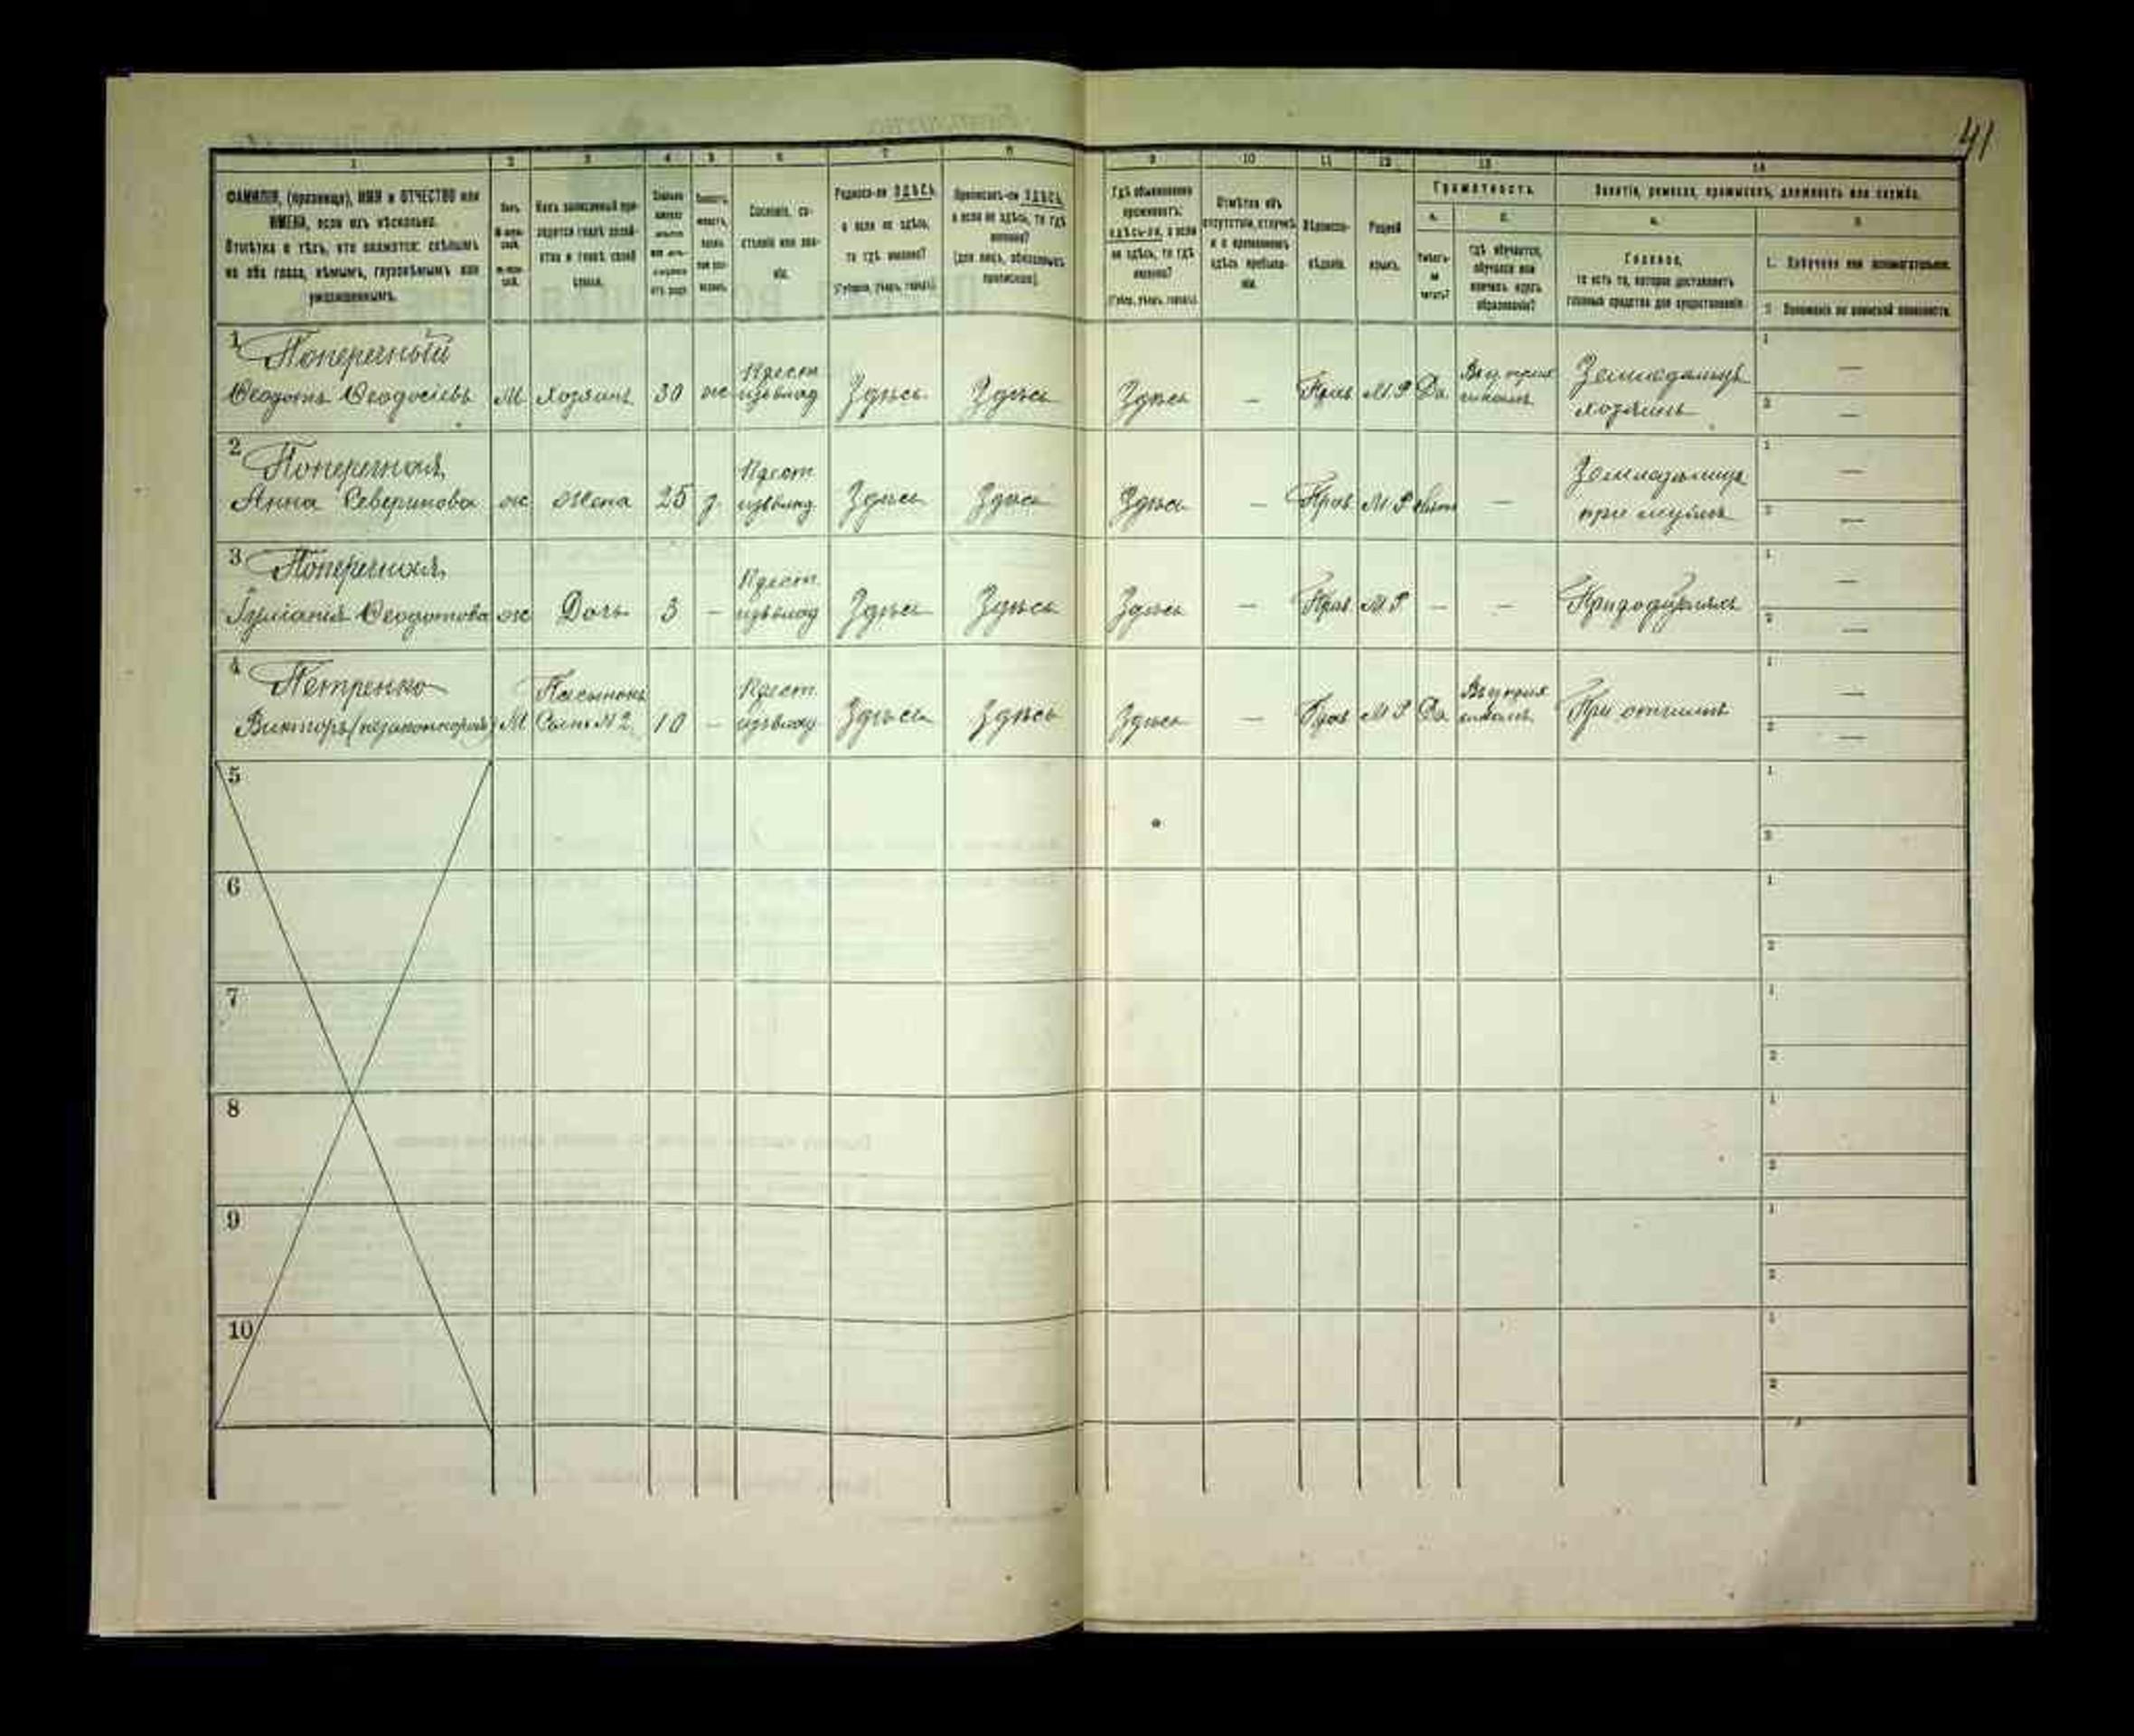 41
1 2 3 4 5 6 7 8 9 10 11 12 13 14
ФАМИЛІЯ, (прозвище), ИМЯ и ОТЧЕСТВО или
ИМЕНА, если ихъ нѣсколько.
Отмѣтка о тѣхъ, кто окажется: слѣпымъ
на оба глаза, нѣмымъ, глухонѣмымъ или
умалишеннымъ.
Какъ записанный при-
ходится главѣ хозяй-
ства и главѣ своей
семьи.
Сословіе, со-
стояніе или зва-
ніе.
Родился-ли ЗДѢСЬ,
а если не здѣсь,
то гдѣ именно?
(Губернія, уѣздъ, городъ).
Приписанъ-ли ЗДѢСЬ,
а если не здѣсь, то гдѣ
именно?
(для лицъ, обязанныхъ
припискою).
Гдѣ обыкновенно
проживаетъ:
здѣсь-ли, а если
не здѣсь, то гдѣ
именно?
(Губер., уѣздъ, городъ).
Отмѣтка объ
отсутствіи, отлучкѣ
и о временномъ
здѣсь пребыва-
ніи.
Вѣроиспо-
вѣданіе.
Родной
языкъ.
Грамотность.
а. б.
Умѣетъ-
ли
читать?
гдѣ обучается,
обучался или
кончилъ курсъ
образованія?
Занятіе, ремесло, промыселъ, должность или служба.
а. б.
Главное,
то есть то, которое доставляетъ
главныя средства для существованія.
1. Побочное или вспомогательное.
2. Положеніе по воинской повинности.
1 Поперечный
Ѳеодотъ Ѳеодосіевъ М Хозяинъ 30 ж Крест. изъ влад Здѣсь Здѣсь Здѣсь — Прав М.Р Да Земледѣлецъ
хозяинъ 1 — 2 —
2 Поперечная
Анна Северинова ж Жена 25 з. Крест изъ влад Здѣсь Здѣсь Здѣсь — Прав М Р Нѣт — Земледѣлица
при мужѣ 1 — 2 —
3 Поперечная
Ѳеодотова ж Дочь 3 — Крест. изъ влад Здѣсь Здѣсь Здѣсь — Прав М.Р. — — 1 — 2 —
4 Петренко
Викторъ (незаконнорож) М Пасынокъ
Сынъ №2 10 — Крест. изъ влад Здѣсь Здѣсь Здѣсь — Прав М Р Да При отчимѣ 1 — 2 —
5 1 2
6 1 2
7 1 2
8 1 2
9 1 2
10 1 2